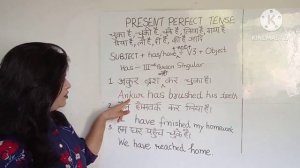 PRESENT PERFECT TENSE
चुका है, चुकी है, चुके हैं, लिया है, गया है
दिया है, ली है, दी है, की है आदि
SUBJECT + has/have + V3 + Object
Has - IIIrd Person Singular
1 अंकुर ब्रश कर चुका है।
Ankur has brushed his teeth.
2 होमवर्क कर लिया है।
have finished my homework
3 हम घर पहुँच चुके हैं।
We have reached home.
KINEMASTER